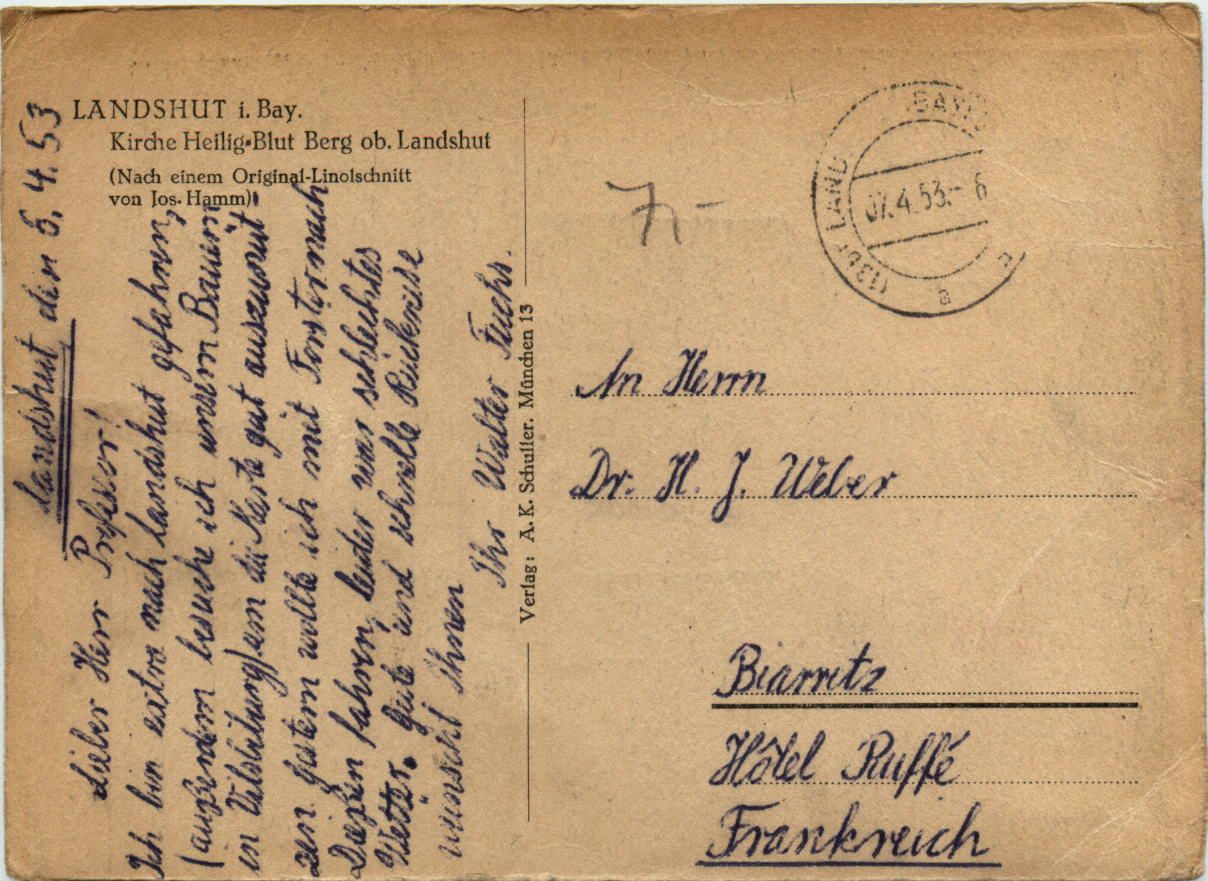 LANDSHUT i. Bay.
Kirche Heilig-Blut Berg ob. Landshut
(Nach einem Original-Linolschnitt
von Jos. Hamm)
Landshut den 6. 4. 53
Lieber Herr Professor!
Ich bin extra nach Landshut gefahren,
(außerdem besuche ich unsern Bauern
in Vilsbiburg) um die Karte gut
zen gestern wollte ich mit Forster nach
fahren, leider war schlechtes
Wetter. Gute und schnelle Rückreise
wünscht Ihnen
Ihr Walter Fuchs.
Verlag: A. K. Schuller. München 13
7,-
(13b) LAND BAY
07.4.53.- 6
a
An Herrn
Dr. H. J. Weber
Biarritz
Hôtel Ruffé
Frankreich